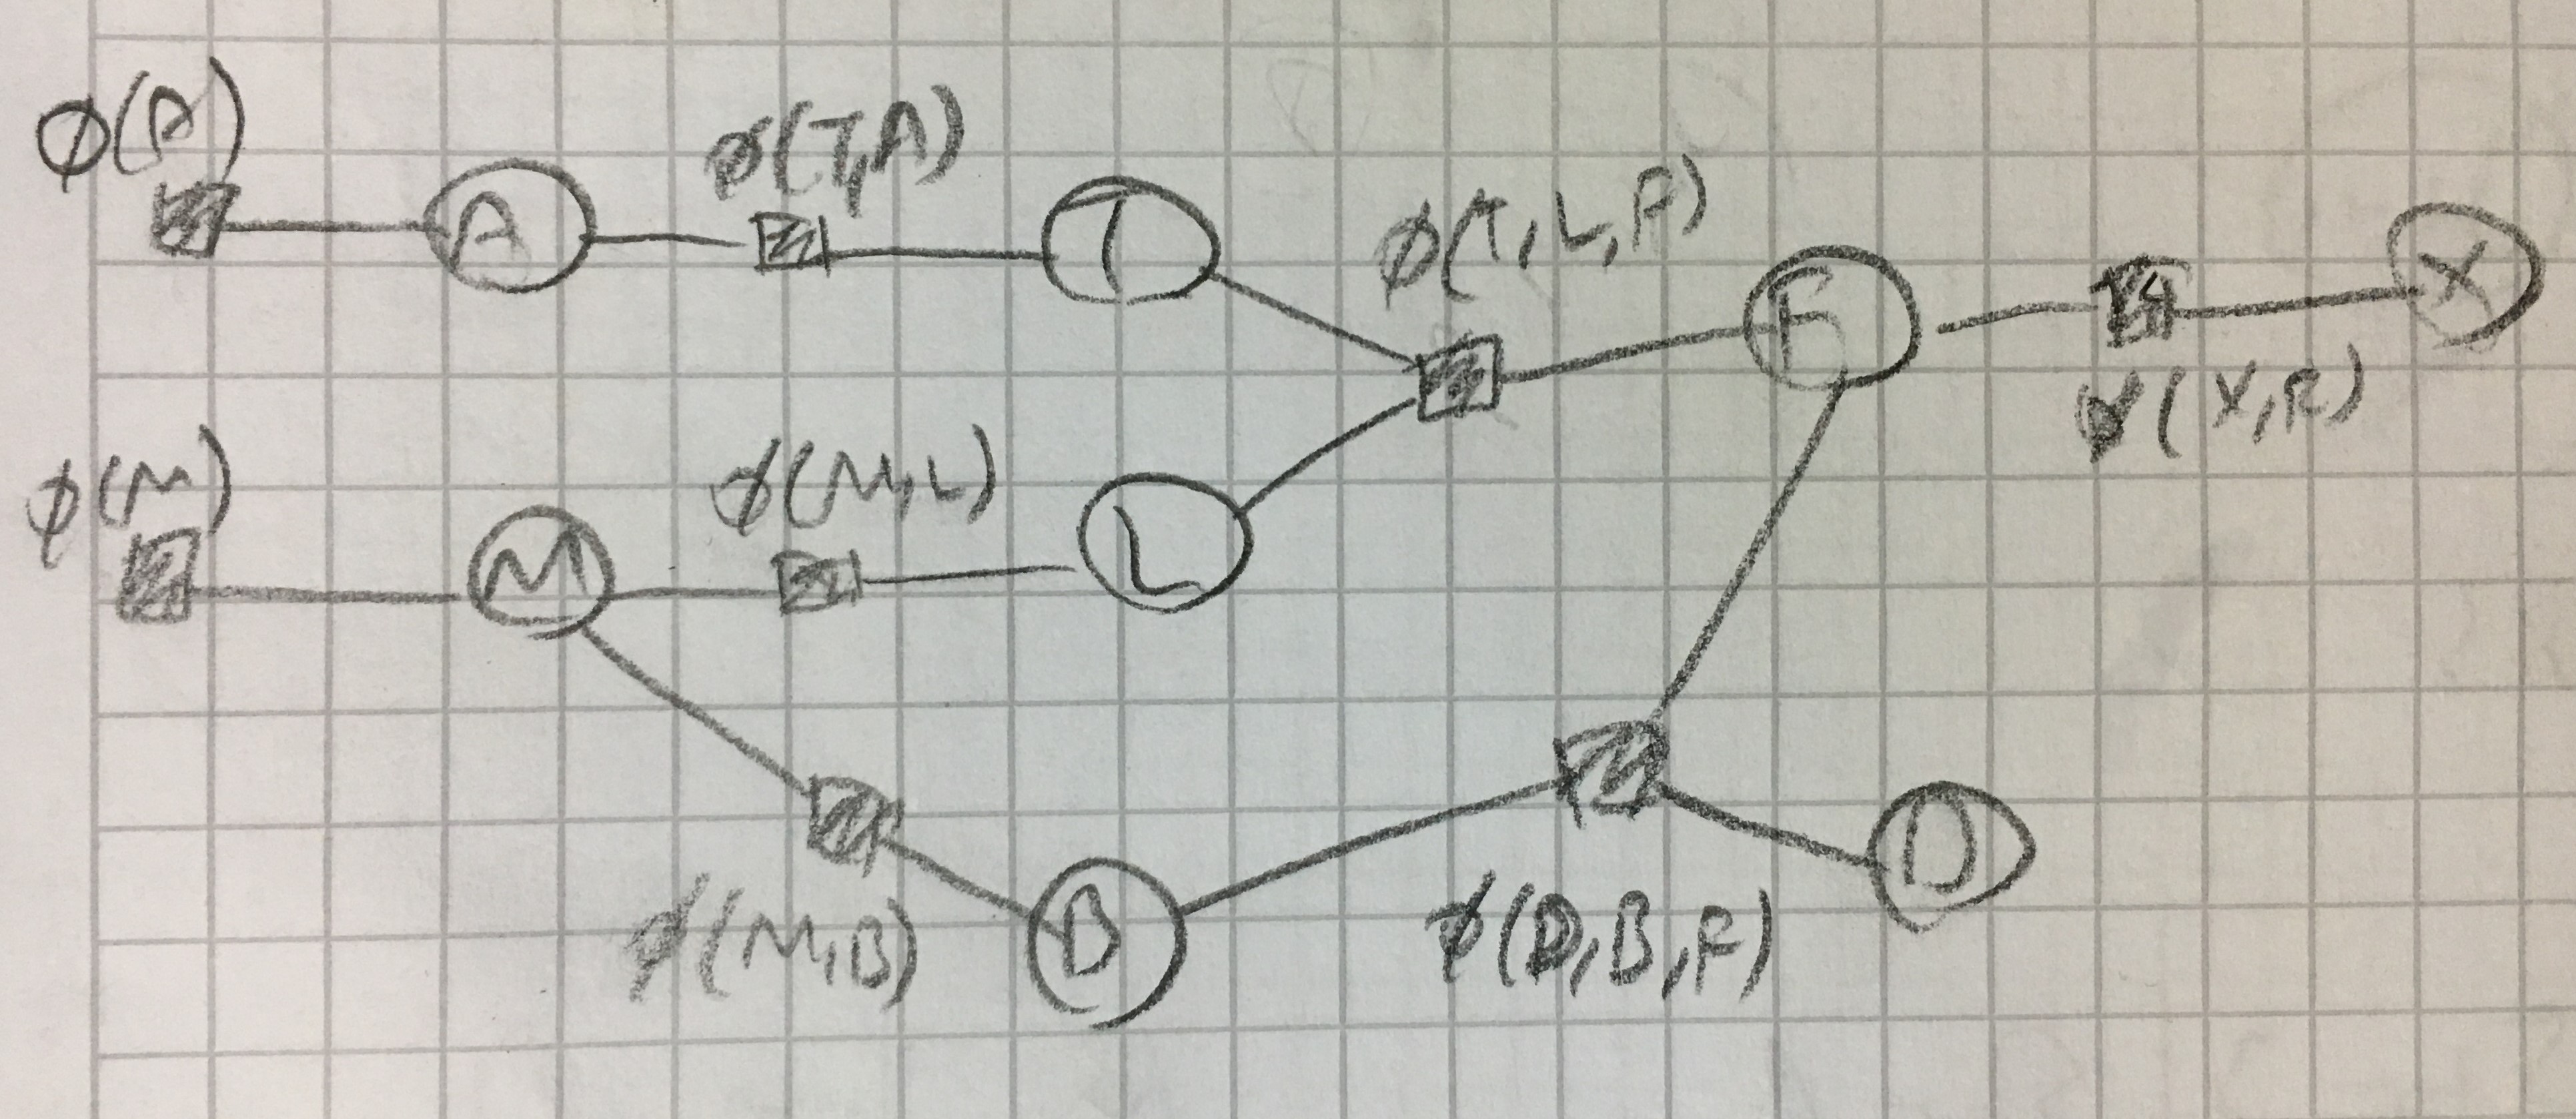 ϕ(A)
ϕ(T,A)
A
T
ϕ(T,L,F)
F
X
ϕ(X,F)
ϕ(M)
ϕ(M,L)
M
L
ϕ(M,B)
B
ϕ(D,B,F)
D